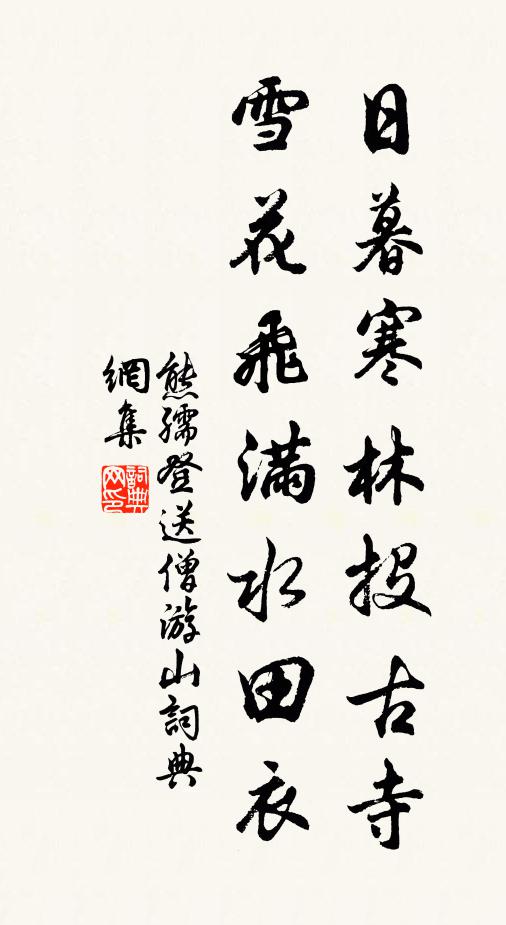 日暮寒林投古寺
雪花飛滿水田衣
熊孺登送僧游山詞典
網集
詞典网印